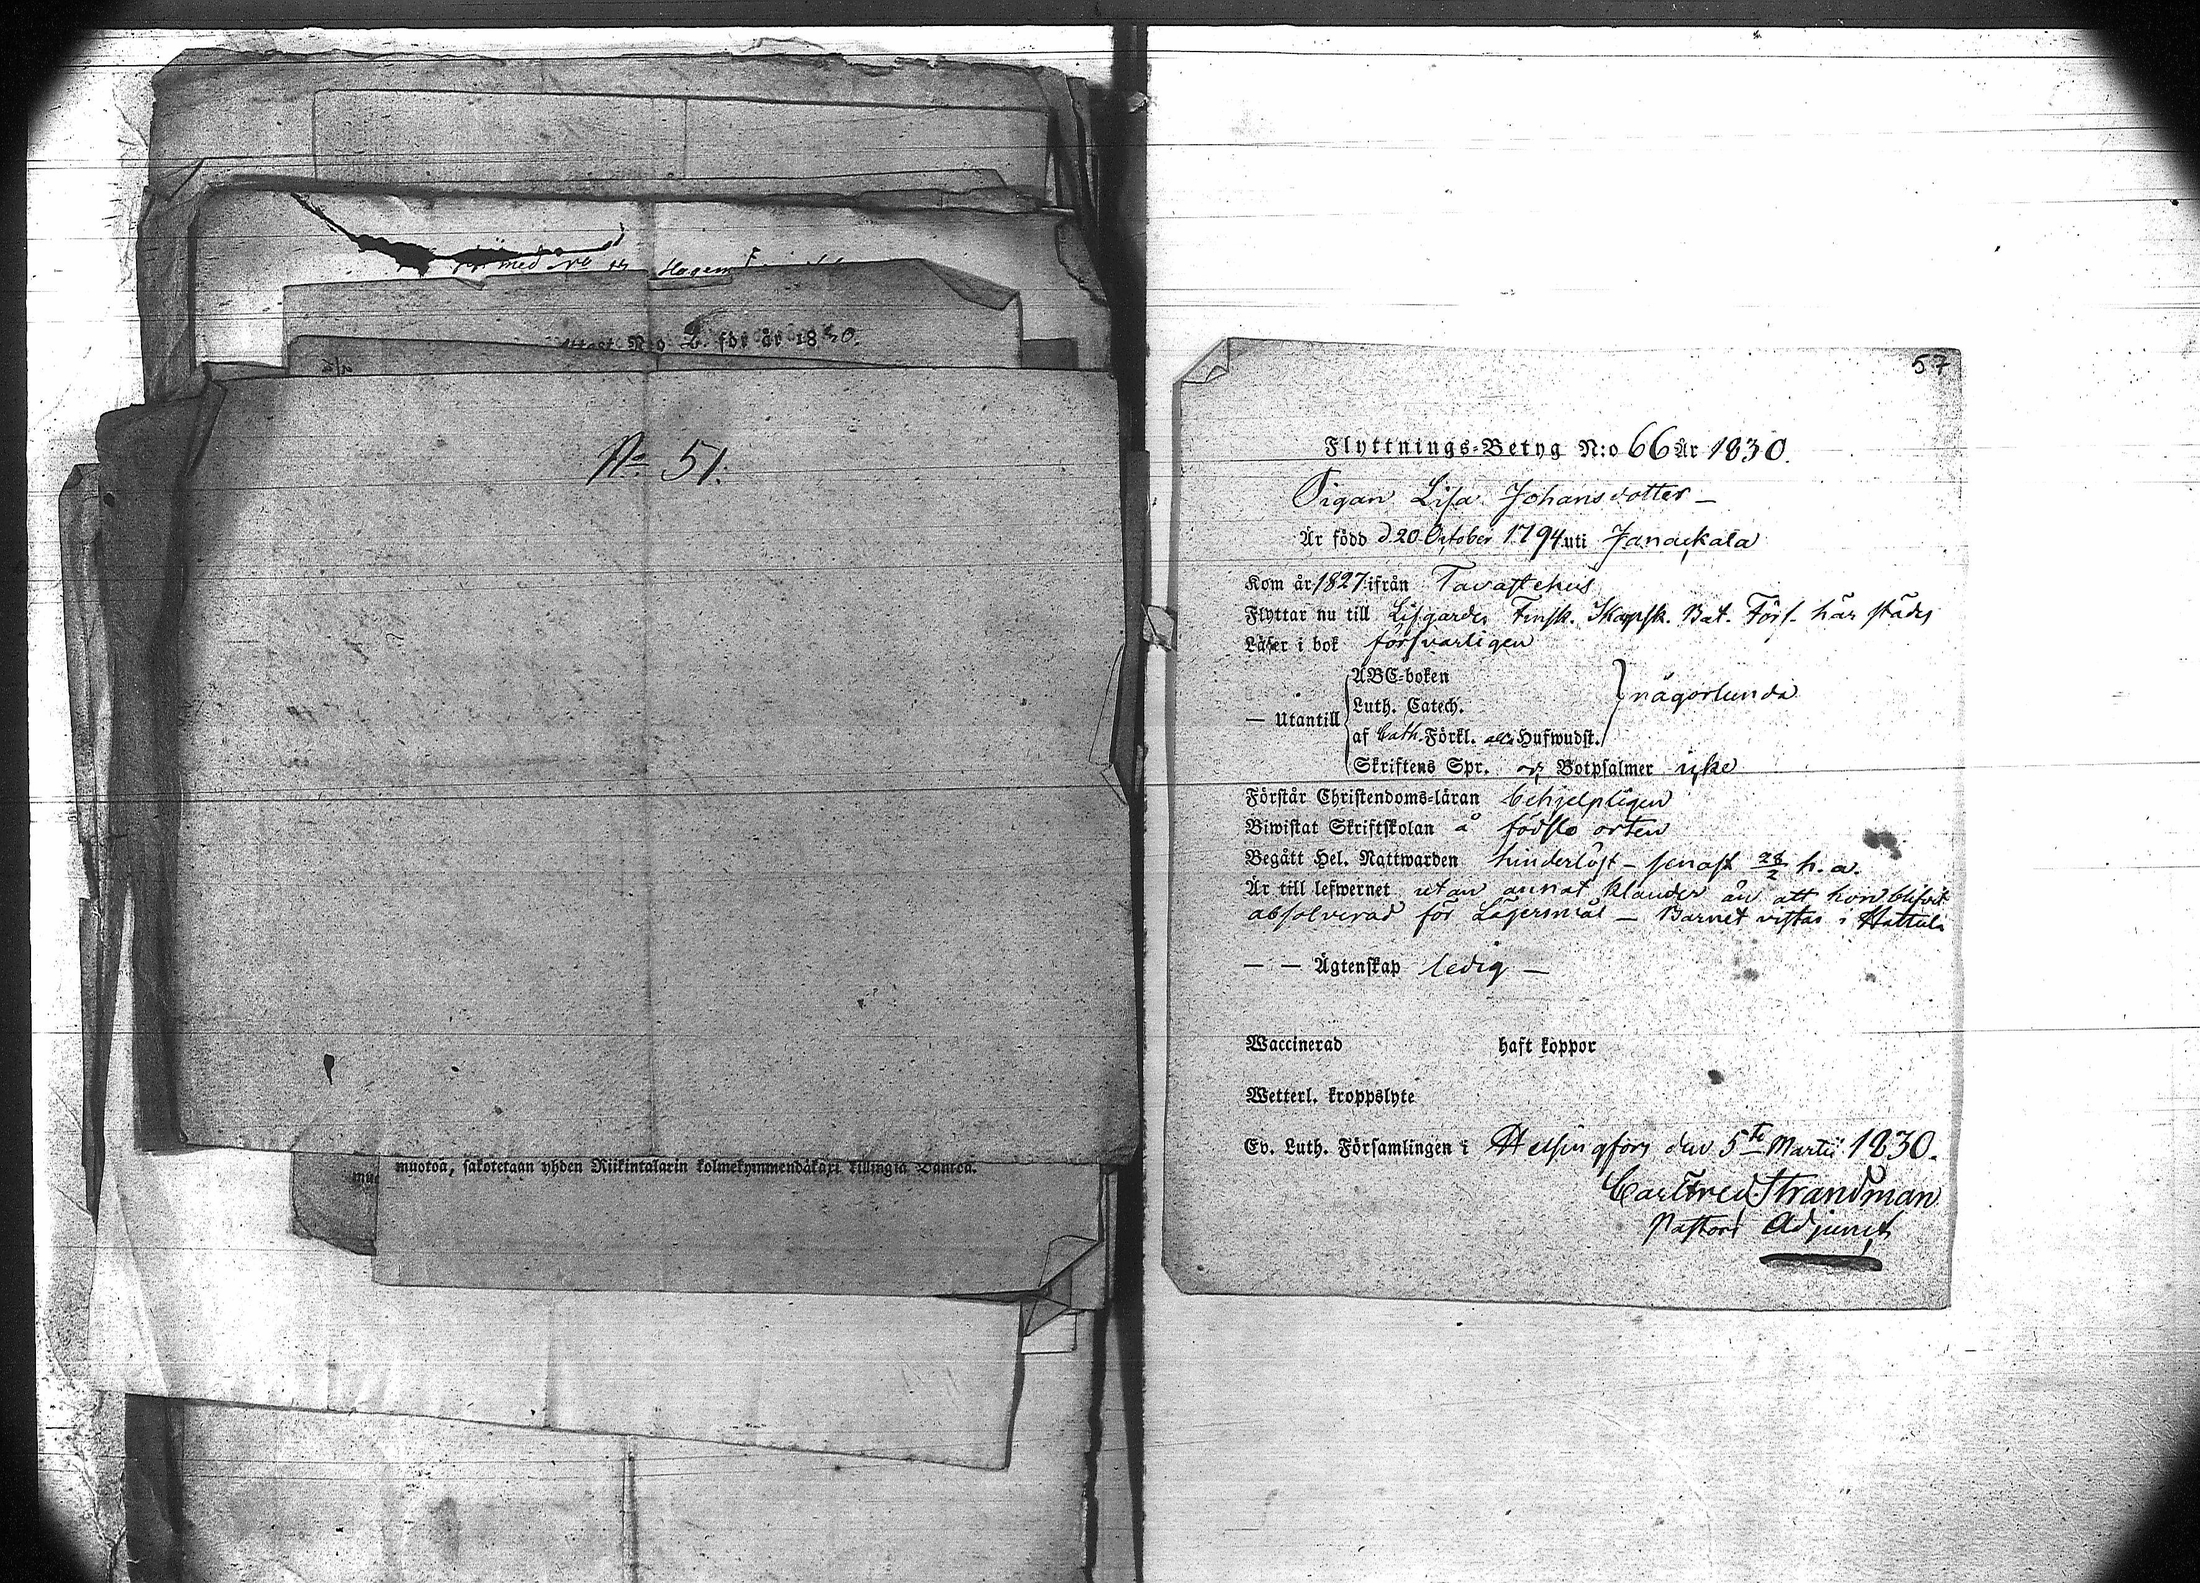 med No
för år 1830.
No 51.
muotoa, sakotetaan yhden Riikintalarin kolmekymmendäkaxi killingiä Bancoa.
57
Flyttnings-Betyg N:o 66 År 1830.
Pigan Lisa Johansdotter —
Är född d 20 October 1794 uti Janackala
Kom år 1827 ifrån Tavastehus
Flyttar nu till Lifgardes Finsk. Skarpsk. Bat. Förs. härstädes
Läser i bok försvarligen
ABC-boken
Luth. Catech.
— Utantill
någorlunda
af Cath. Förkl. Hufwudst.
Skriftens Spr. och Botpsalmer icke
Förstår Christendoms-läran behjelpligen
Biwistat Skriftskolan å födslo orten
Begått Hel. Nattwarden hinderlöst — senast 28/2 h. a.
Är till lefwernet utan annat klander än att hon blifvit
absolverad för Lägersmål — Barnet vistas i Hattula
— — Ägtenskap ledig —
Waccinerad haft koppor
Wetterl. kroppslyte
Ev. Luth. Församlingen i Helsingfors den 5te Martii 1830.
Carl Fred Strandman
Pastors Adjunct